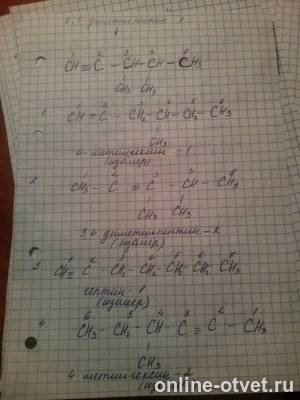 3,4 диметилпентин 1
1 2 3 4 5
CH ≡ C - CH - CH - CH₃
CH₃ CH₃
1 2 3 4 5 6
1. CH ≡ C - CH₂ - CH - CH₂ - CH₃
CH₃
4-метилгексин-1
(изомер)
2. CH₃ - C ≡ C - CH - CH₃
CH₃ CH₃
3,4 диметилпентин-2
(изомер)
3. CH ≡ C - CH₂ - CH₂ - CH₂ - CH₂ - CH₃
гептин-1
(изомер)
6 5 4 3 2 1
4. CH₃ - CH₂ - CH - C ≡ C - CH₃
CH₃
4 метилгексин-2
online-otvet.ru